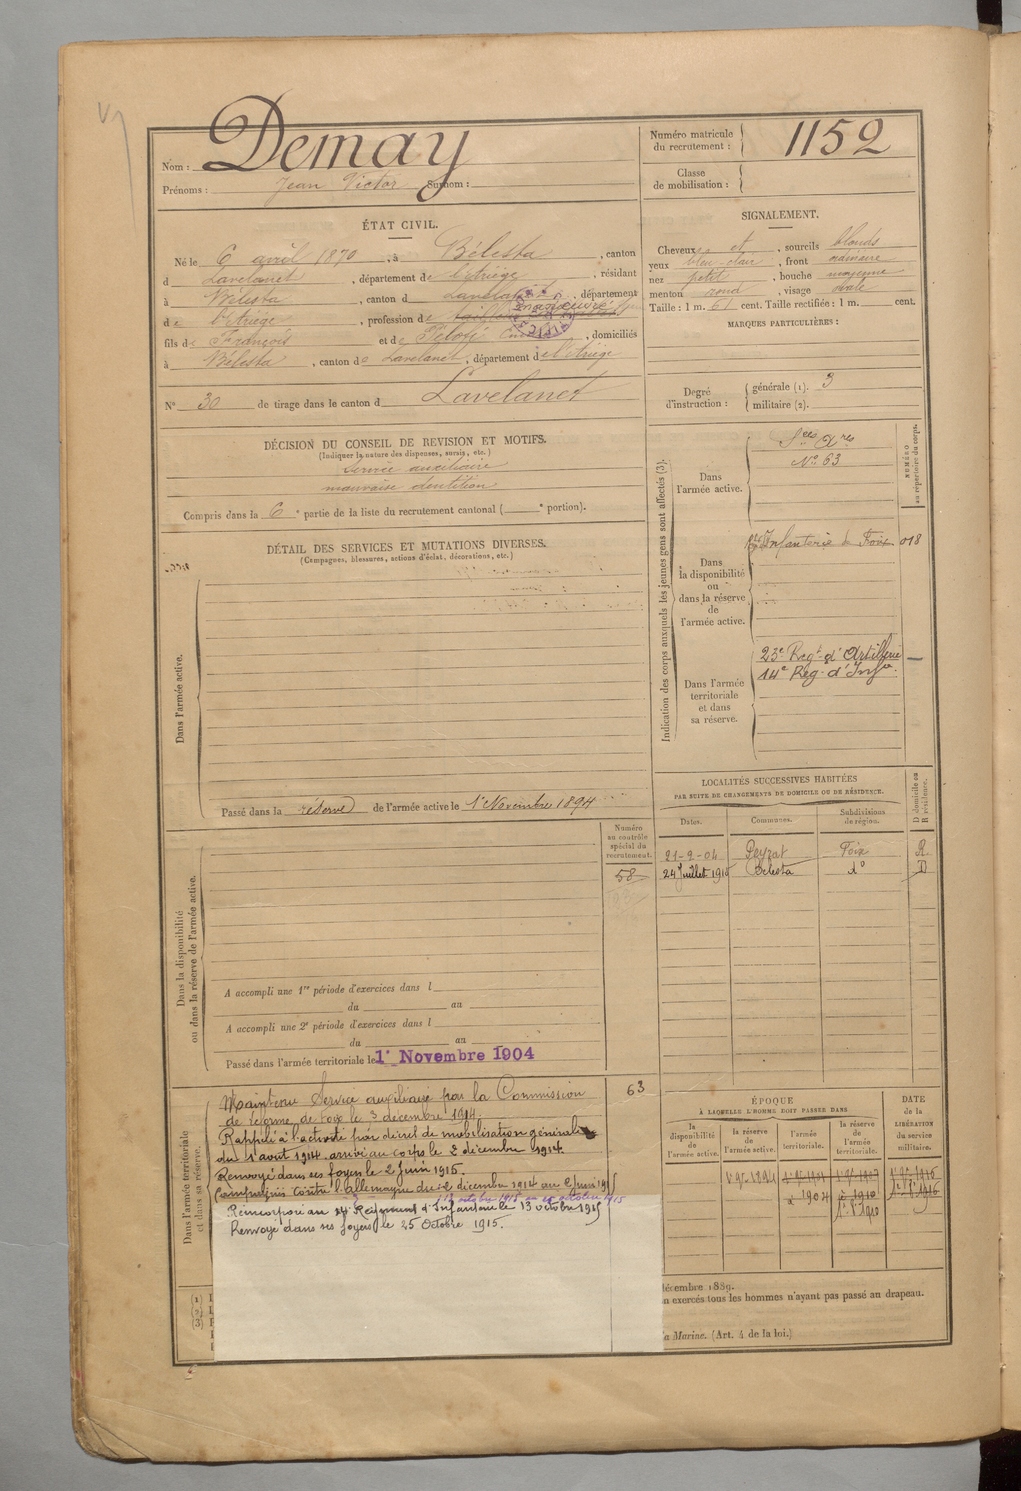 Nom : Demay
Prénoms : Jean Victor Surnom :
Numéro matricule du recrutement : 1152
Classe de mobilisation :
ÉTAT CIVIL.
Né le 6 avril 1870, à Bélesta, canton
d Lavelanet, département de l'Ariège, résidant
à Bélesta, canton d Lavelanet, département
de l'Ariège, profession de
fils de François et de, domiciliés
à Bélesta, canton de Lavelanet, département de l'Ariège
N° 30 de tirage dans le canton d Lavelanet
SIGNALEMENT.
Cheveux et, sourcils blonds
yeux bleu-clair, front ordinaire
nez petit, bouche moyenne
menton rond, visage ovale
Taille : 1 m. 61 cent. Taille rectifiée : 1 m. cent.
MARQUES PARTICULIÈRES :
Degré d'instruction : générale (1). 3
militaire (2).
DÉCISION DU CONSEIL DE REVISION ET MOTIFS.
(Indiquer la nature des dispenses, sursis, etc.)
Service auxiliaire
mauvaise dentition
Compris dans la 6e partie de la liste du recrutement cantonal ( e portion).
DÉTAIL DES SERVICES ET MUTATIONS DIVERSES.
(Campagnes, blessures, actions d'éclat, décorations, etc.)
Dans l'armée active.
Passé dans la réserve de l'armée active le 1er Novembre 1894
Indication des corps auxquels les jeunes gens sont affectés (3).
NUMÉRO au répertoire du corps.
Dans l'armée active.
N° 63
Dans la disponibilité ou dans la réserve de l'armée active.
Infanterie de Foix 018
Dans l'armée territoriale et dans sa réserve.
23e Regt d'Artillerie
14e Reg. d'Infie
LOCALITÉS SUCCESSIVES HABITÉES
PAR SUITE DE CHANGEMENTS DE DOMICILE OU DE RÉSIDENCE.
Dates. Communes. Subdivisions de région. D domicile ou R résidence.
21-2-04 Peyrat Foix R
24 Juillet 1910 Bélesta do D
Dans la disponibilité ou dans la réserve de l'armée active.
Numéro au contrôle spécial du recrutement.
58
A accompli une 1re période d'exercices dans l
du au
A accompli une 2e période d'exercices dans l
du au
Passé dans l'armée territoriale le 1er Novembre 1904
Dans l'armée territoriale et dans sa réserve.
63
Maintenu Service auxiliaire par la Commission
de réforme de Foix le 3 décembre 1914.
Rappelé à l'activité par décret de mobilisation générale
du 1 août 1914. arrivé au corps le 2 décembre 1914.
Renvoyé dans ses foyers le 2 Juin 1915.
Campagnes contre l'allemagne du 2 décembre 1914 au 2 Juin 1915
13 octobre 1915 au octobre 1915
Réincorporé au 14e Régiment d'Infanterie le 13 octobre 1915
Renvoyé dans ses foyers le 25 Octobre 1915.
ÉPOQUE
À LAQUELLE L'HOMME DOIT PASSER DANS
la disponibilité de l'armée active. la réserve de l'armée active. l'armée territoriale. la réserve de l'armée territoriale.
DATE de la LIBÉRATION du service militaire.
1 9bre 1894
1904
1910
1916
1
2
3
décembre 1889.
n exercés tous les hommes n'ayant pas passé au drapeau.
la Marine. (Art. 4 de la loi.)